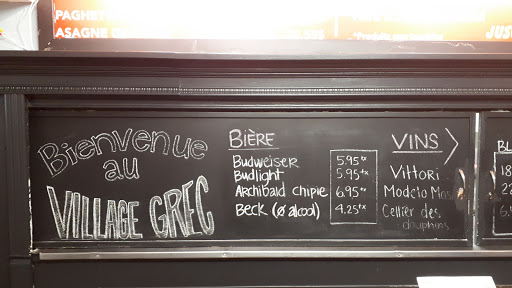 ASAGNE
JUS
Bienvenue
au
VILLAGE GREC
BIÈRE
Budweiser 5.95+x
Budlight 5.95+x
Archibald chipie 6.95+x
Beck (ø alcool) 4.25+x
VINS
Vittori
Modelo Mas
Cellier des
dauphins
BL
18
22
6.